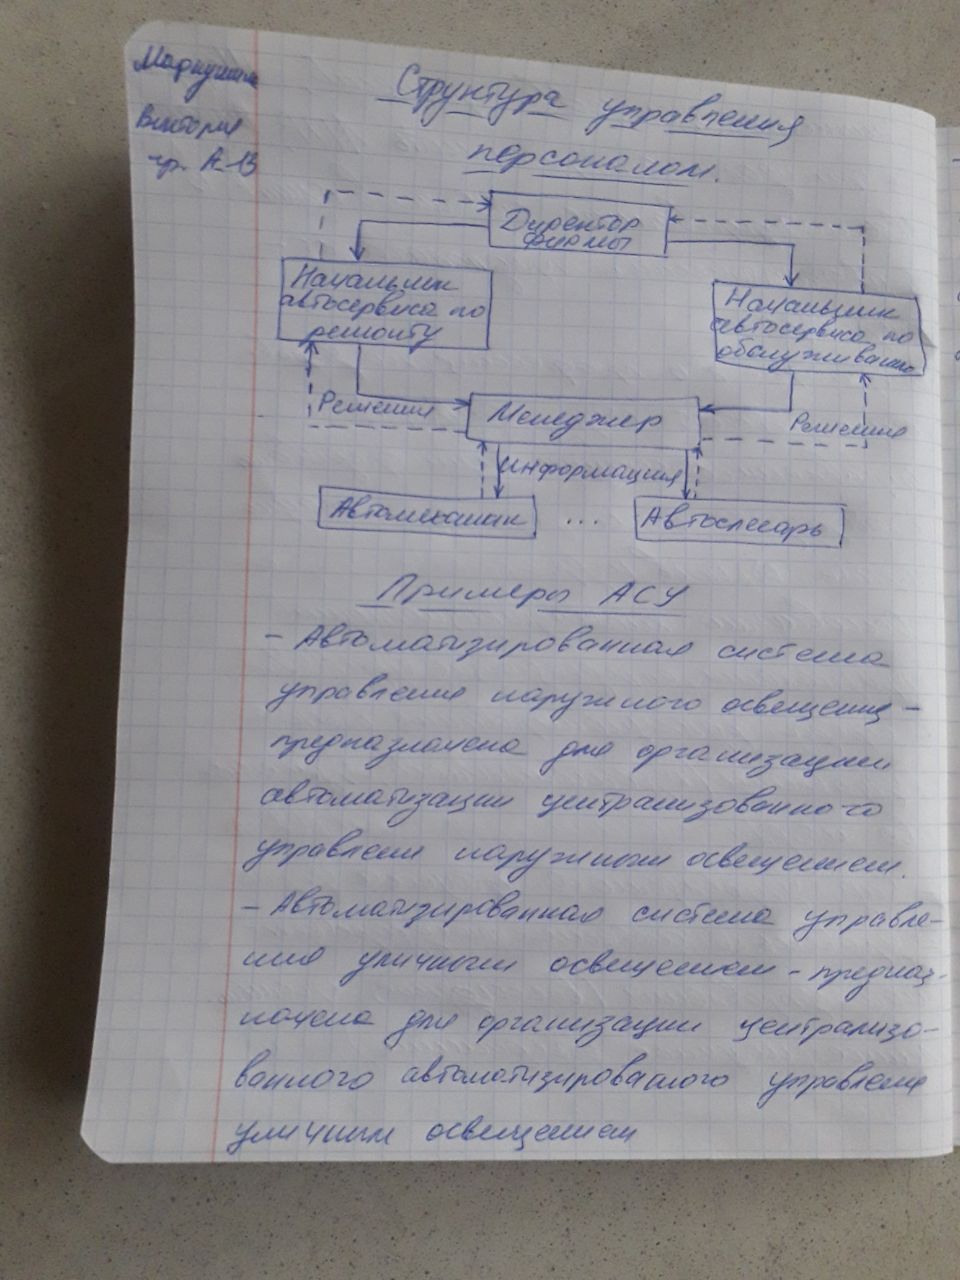 Виктория
гр. А-13
Структура управления
персоналом.
Директор
фирмы
Начальник
автосервиса по
ремонту
Начальник
автосервиса по
обслуживанию
Решение
Менеджер
Решение
информация
Автомеханик
...
Автослесарь
Примеры АСУ
- Автоматизированная система
управления наружного освещения -
предназначена для организации
автоматизации централизованного
управления наружным освещением.
- Автоматизированная система управле-
ния уличным освещением - предназ-
начена для организации централизо-
ванного автоматизированного управления
уличным освещением